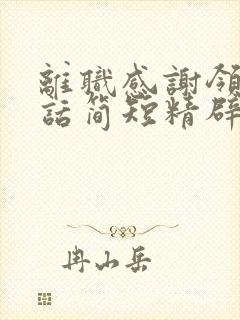 離職感謝領
話简短精辟
冉山岳